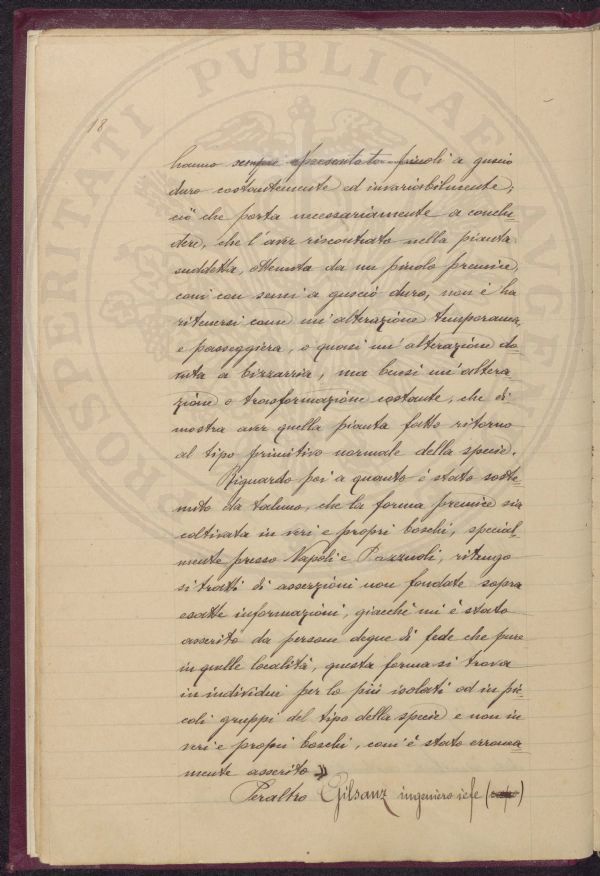 18
hanno sempre presentato pinoli a guscio
duro costantemente ed invariabilmente;
ciò che porta necessariamente a conclu-
dere, che l'aver riscontrato nella pianta
suddetta, ottenuta da un pinolo premice,
coni con semi a guscio duro, non è ha
ritenersi come un'alterazione temporanea,
e passeggiera, o quasi un'alterazione do-
vuta a bizzarria, ma bensi un'altera-
zione o trasformazione costante, che di-
mostra aver quella pianta fatto ritorno
al tipo primitivo normale della specie.
Riguardo poi a quanto è stato soste-
nuto da taluno, che la forma premice sia
coltivata in veri e propri boschi, special-
mente presso Napoli e Pazzuoli, ritengo
si tratti di asserzioni non fondate sopra
esatte informazioni, giacchè mi è stato
asserito da persone degne di fede che pure
in quelle località, questa forma si trova
in individui per lo più isolati od in pic-
coli gruppi del tipo della specie e non in
veri e propri boschi, com'è stato erronea-
mente asserito »
Peraltro Gilsanz ingeniero jefe
PROSPERITATI PVBLICAE AVGENDAE